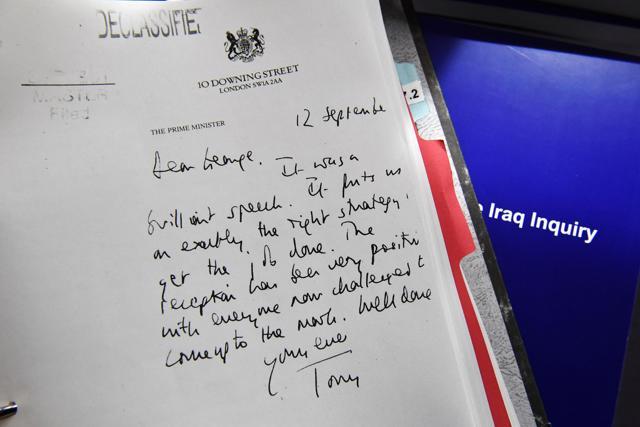 DECLASSIFIE
10 DOWNING STREET
LONDON SW1A 2AA
MASTER
Filed
THE PRIME MINISTER
12 September
Dear George.
It was a
brilliant speech. It puts us
on exactly the right strategy,
get the job done. The
reception has been very positive
with everyone now challenged to
come up to the mark. Well done
Yours ever
Tony
.2
Iraq Inquiry